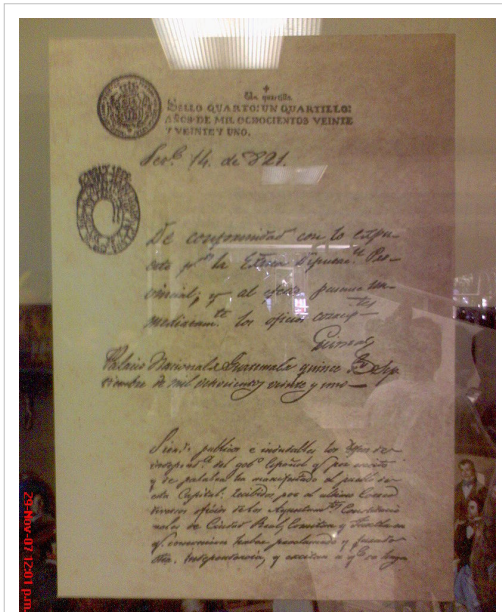 Un quartillo
SELLO QUARTO: UN QUARTILLO:
AÑOS DE MIL OCHOCIENTOS VEINTE
Y VEINTE Y UNO.
14. de 821.
De conformidad con lo expu-
esto pr. la Exma. Diputacn. Pro-
vincial; y al efecto
los oficios
Palacio Nacional de Guatemala quince de Sep-
tiembre de mil ochocientos veinte y uno
Siendo publico e indudables los deseos de
independa. del gobo. Español q. por escrito
y de palabra ha manifestado el pueblo de
esta Capital: recibidos por el ultimo Correo
diversos oficios de los Ayuntamtos. Constitucio
nales de Ciudad Real, Comitan y Tuxtla en
q. comunican haber proclamado y jurado
dha. Independencia, y excitan a q. se haga
29-Nov-07 12:01 p.m.